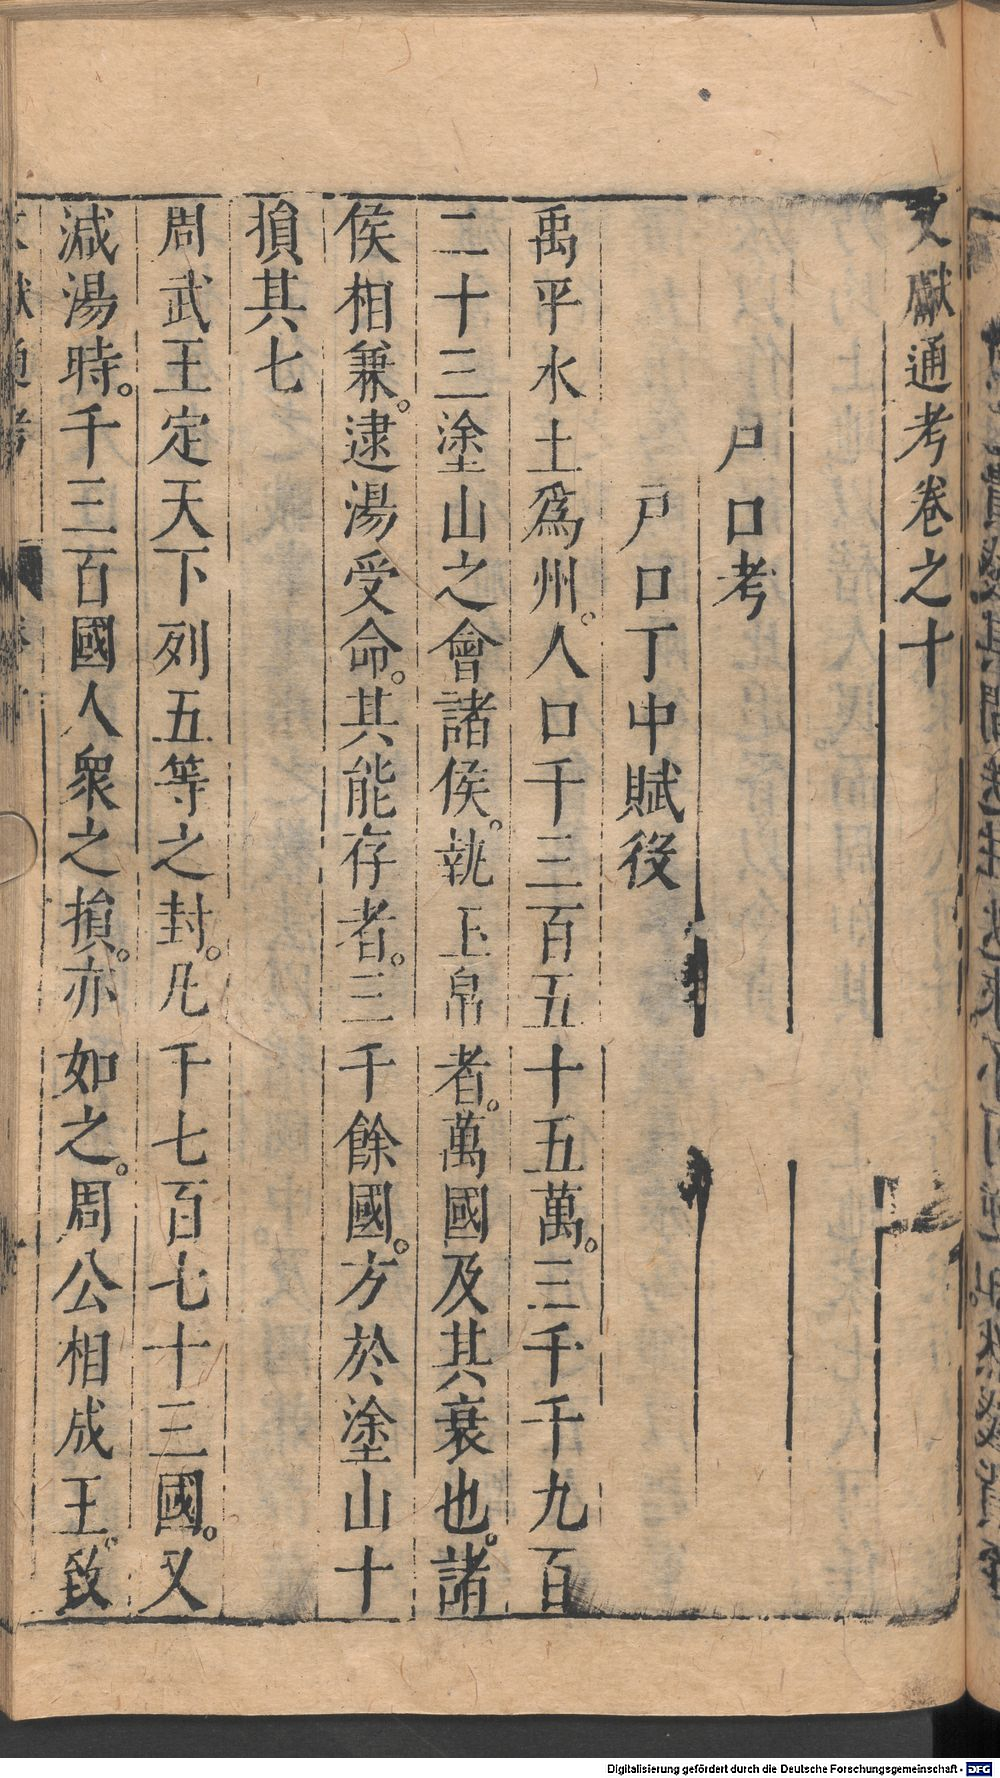 文獻通考卷之十
戶口考
戶口丁中賦役
禹平水土爲州。人口千三百五十五萬。三千千九百
二十三塗山之會諸侯。執玉帛者。萬國及其衰也。諸
侯相兼。逮湯受命。其能存者。三千餘國。方於塗山十
損其七
周武王定天下列五等之封。凡千七百七十三國。又
減湯時。千三百國人衆之損。亦如之。周公相成王。致
Digitalisierung gefördert durch die Deutsche Forschungsgemeinschaft - DFG